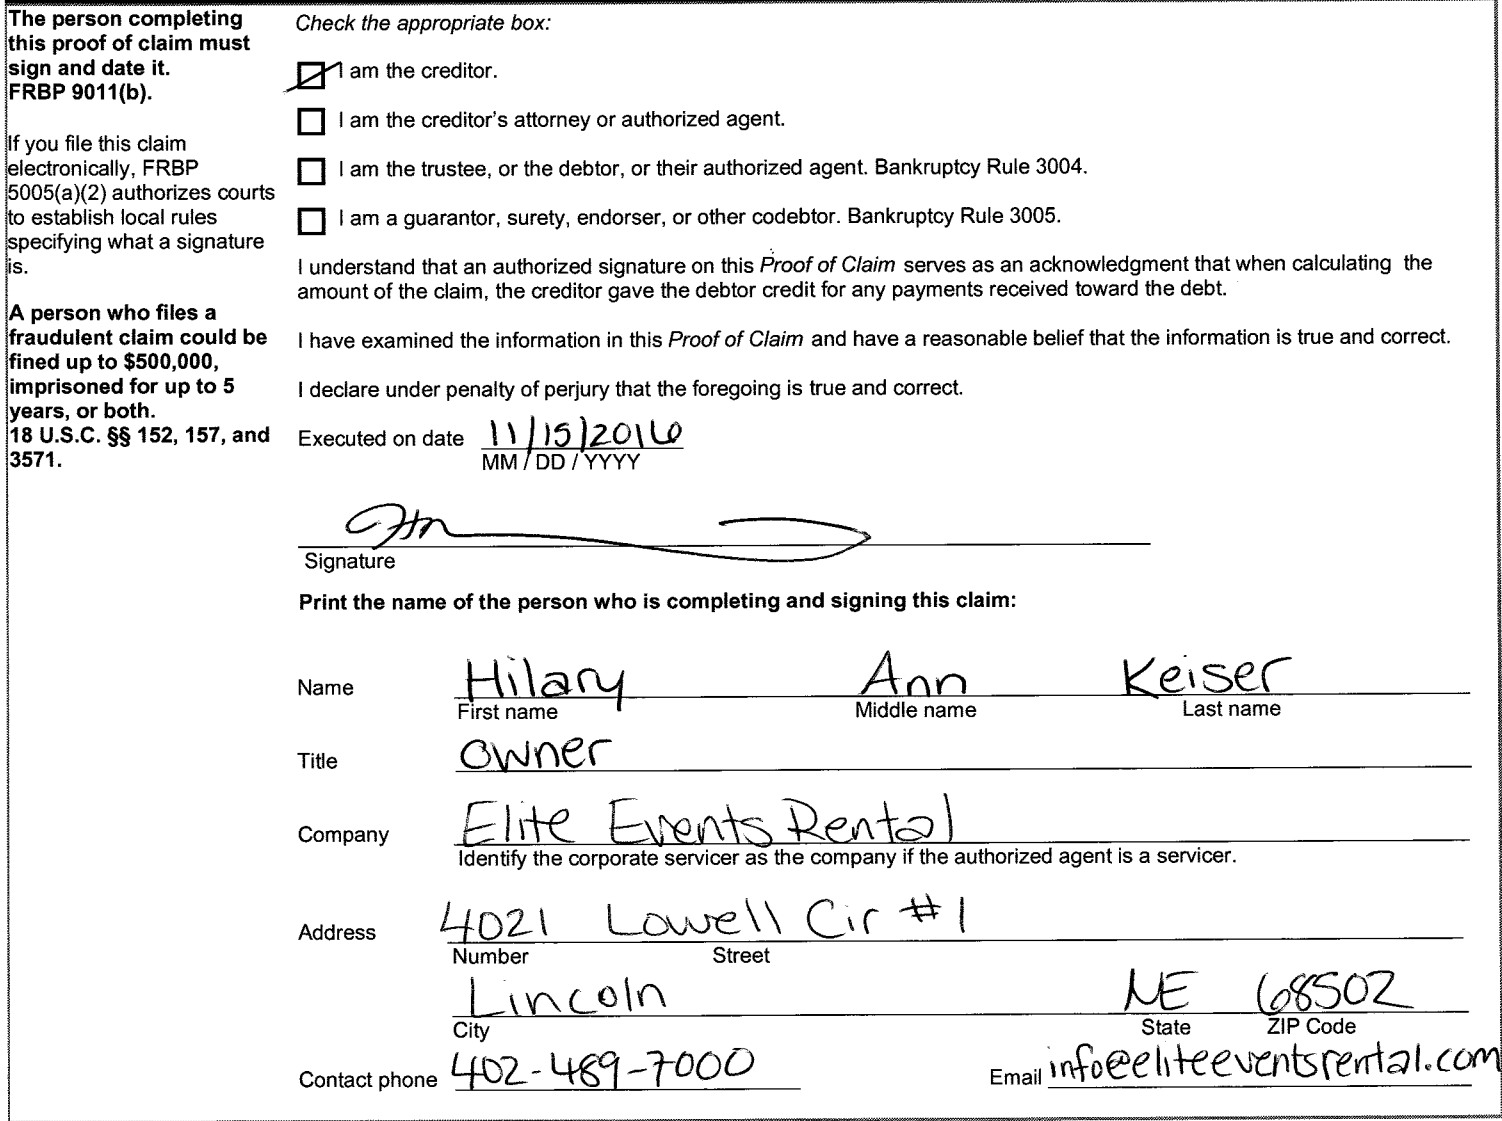 The person completing
this proof of claim must
sign and date it.
FRBP 9011(b).
If you file this claim
electronically, FRBP
5005(a)(2) authorizes courts
to establish local rules
specifying what a signature
is.
A person who files a
fraudulent claim could be
fined up to $500,000,
imprisoned for up to 5
years, or both.
18 U.S.C. §§ 152, 157, and
3571.
Check the appropriate box:
I am the creditor.
I am the creditor's attorney or authorized agent.
I am the trustee, or the debtor, or their authorized agent. Bankruptcy Rule 3004.
I am a guarantor, surety, endorser, or other codebtor. Bankruptcy Rule 3005.
I understand that an authorized signature on this Proof of Claim serves as an acknowledgment that when calculating the
amount of the claim, the creditor gave the debtor credit for any payments received toward the debt.
I have examined the information in this Proof of Claim and have a reasonable belief that the information is true and correct.
I declare under penalty of perjury that the foregoing is true and correct.
Executed on date 11/15/2016
MM / DD / YYYY
Signature
Print the name of the person who is completing and signing this claim:
Name Hilary Ann Keiser
First name Middle name Last name
Title owner
Company Elite Events Rental
Identify the corporate servicer as the company if the authorized agent is a servicer.
Address 4021 Lowell Cir #1
Number Street
Lincoln NE 68502
City State ZIP Code
Contact phone 402-489-7000 Email info@eliteeventsrental.com